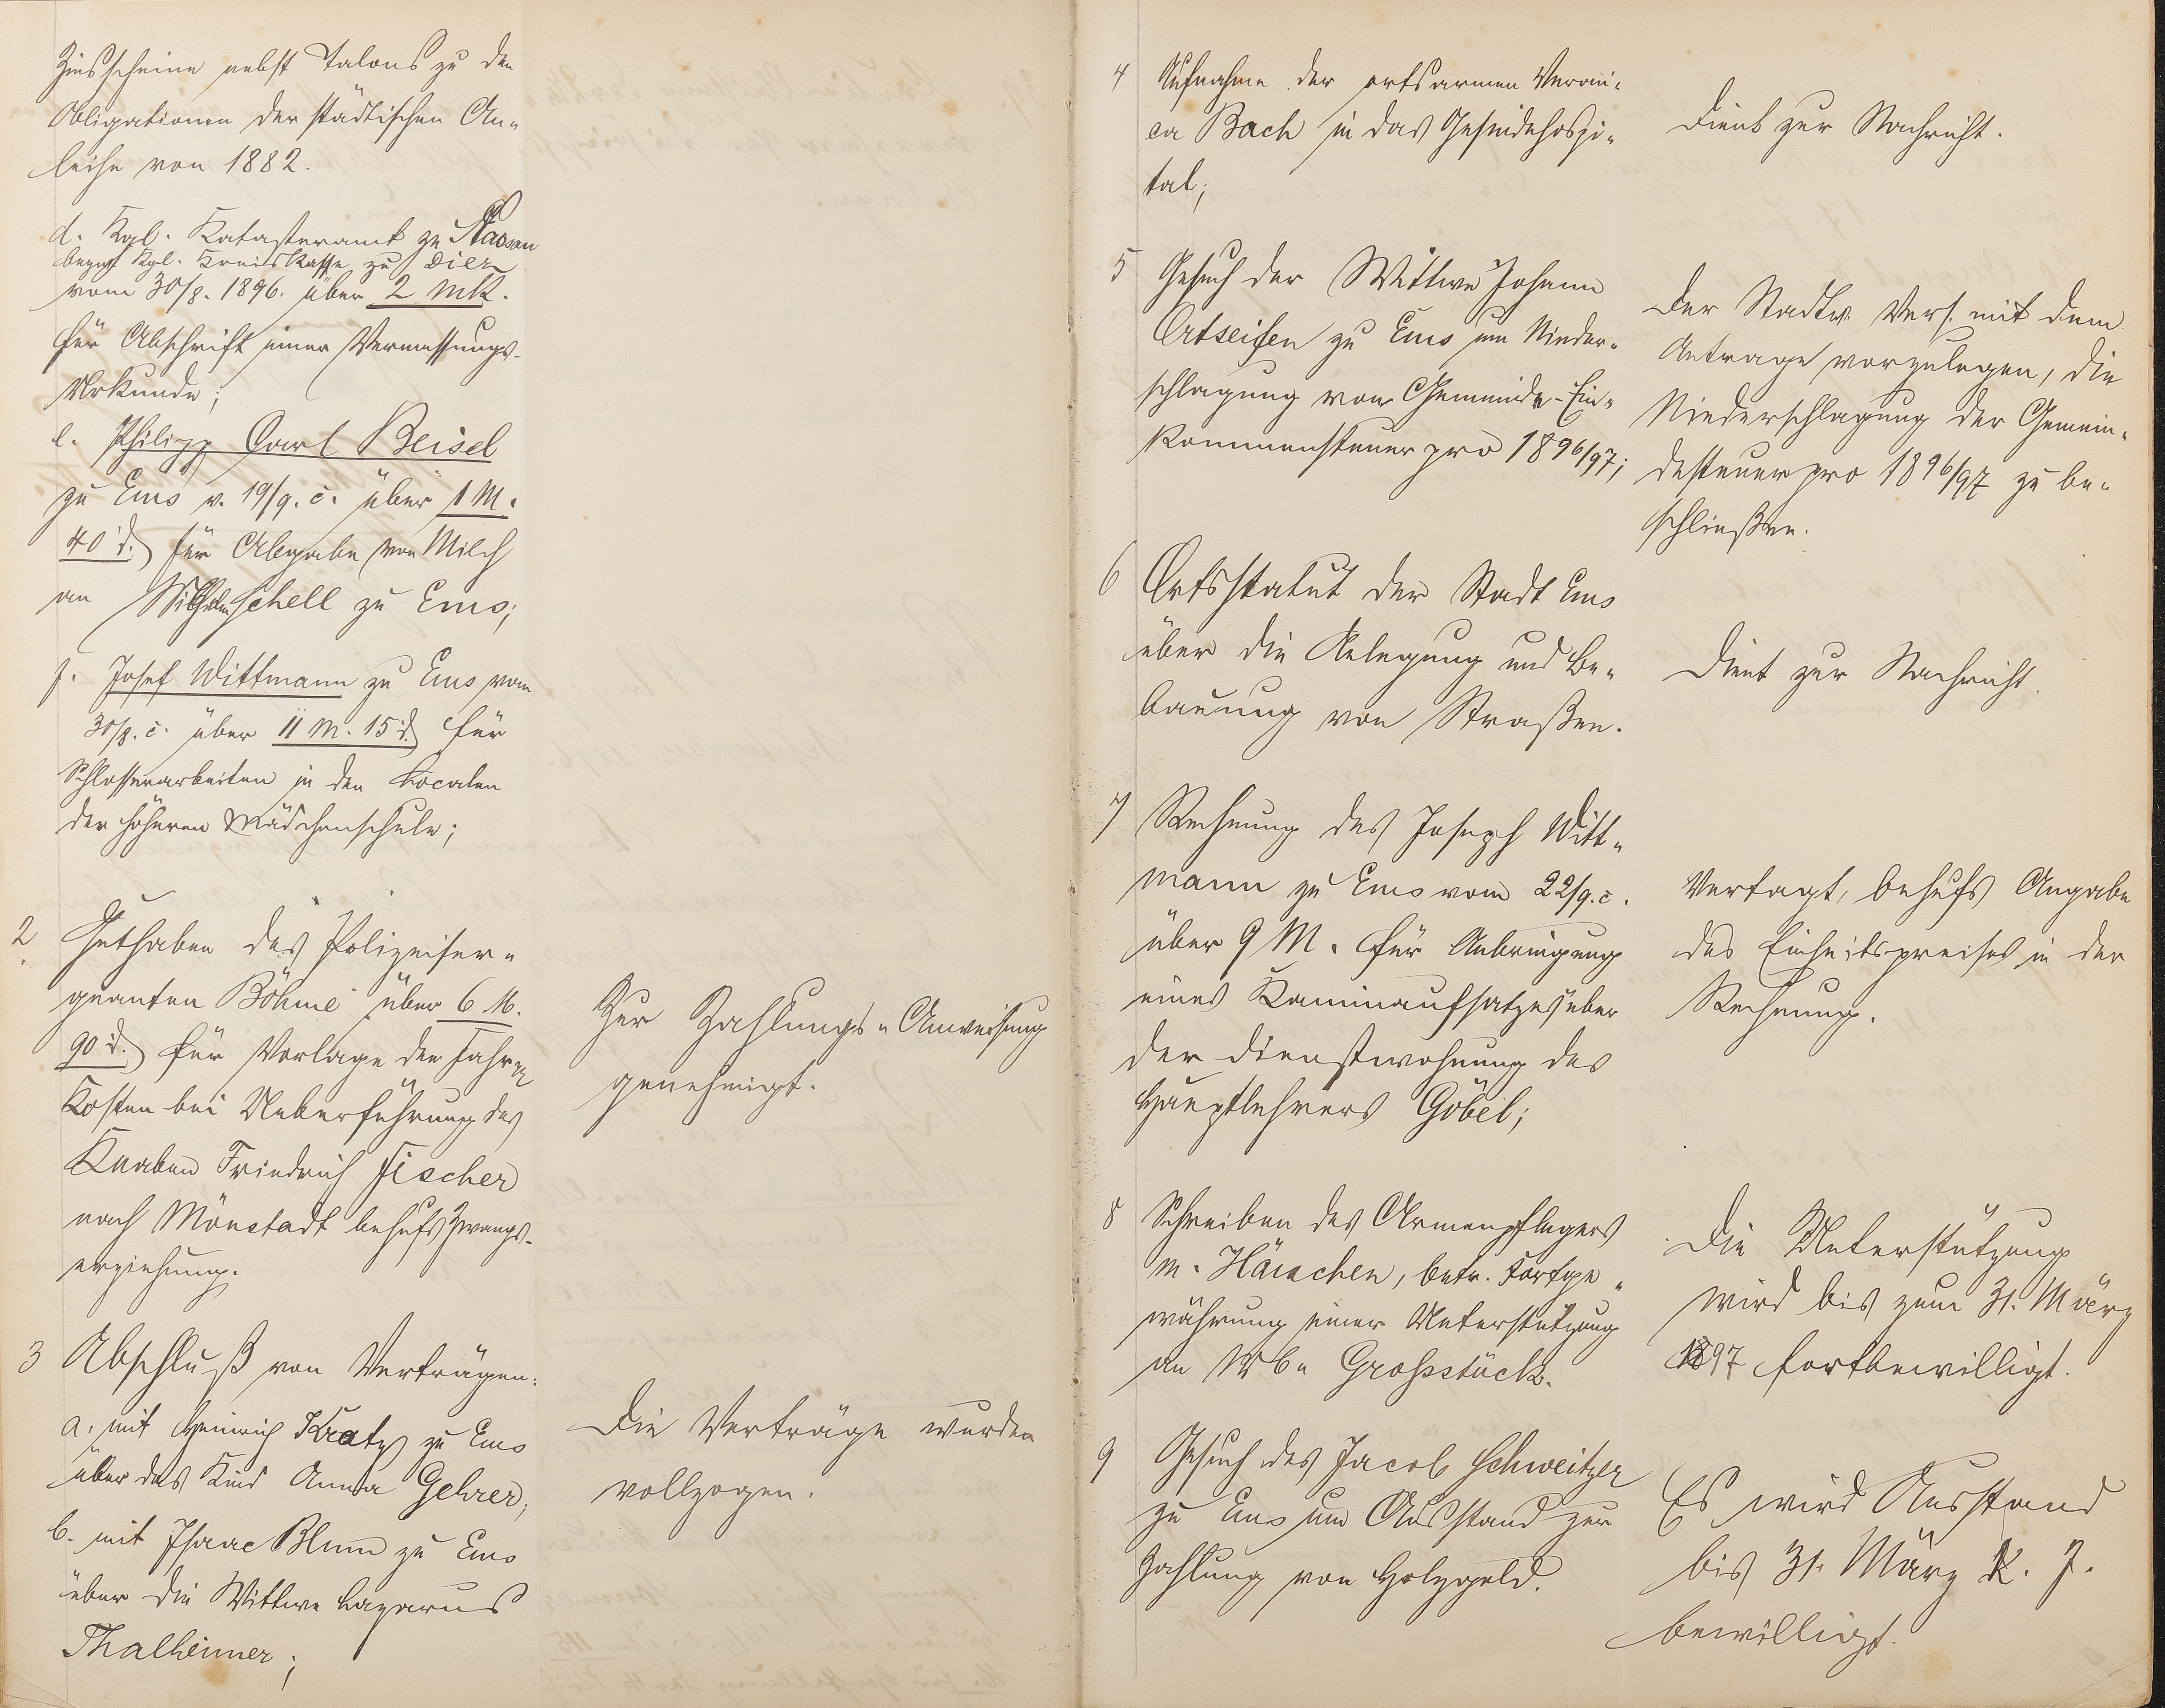 Zinsscheine nebst Talons zu den
Obligationen der städtischen An-
leihe von 1882.
d. Kgl. Katasteramt zu Nassau
bezw. Kgl. Kreiskasse zu Diez
vom 30/8. 1896. über 2 Mk.
für Abschrift einer Vermessungs-
Urkunde;
e. Philipp Carl Beisel
zu Ems v. 19/9. c. über 1 M.
40 d. für Abgabe von Milch
an Wilhelm Schell zu Ems;
f. Josef Wittmann zu Ems vom
30/8. c. über 11 M. 15 d. für
Schlosserarbeiten in den Localen
der höheren Mädchenschule;
2. Guthaben des Polizeiser-
geanten Böhme über 6 M.
90 d. für Vorlage der Fahr-
Kosten bei Ueberführung des
Knaben Friedrich Fischer
nach Mönstadt behufs Zwangs-
erziehung.
Zur Zahlungs-Anweisung
genehmigt.
3 Abschluß von Verträgen:
a. mit Heinrich Kratz zu Ems
über das Kind Anna Gehrer;
b. mit Isaac Blum zu Ems
über die Wittwe Lazarus
Thalheimer;
Die Verträge wurden
vollzogen.
4 Aufnahme der ortsarmen Veroni-
ca Bach in das Gesindehospi-
tal;
Dient zur Nachricht.
5 Gesuch der Wittwe Johann
Ortseifen zu Ems um Nieder-
schlagung von Gemeinde-Ein-
kommensteuer pro 1896/97;
Der Stadtv. Vers. mit dem
Antrage vorzulegen, die
Niederschlagung der Gemein-
desteuer pro 1896/97 zu be-
schließen.
6 Ortsstatut der Stadt Ems
über die Anlegung und Be-
bauung von Straßen.
Dient zur Nachricht.
7 Rechnung des Joseph Witt-
mann zu Ems vom 22/9. c.
über 9 M. für Anbringung
eines Kaminaufsatzes über
der Dienstwohnung des
Hauptlehrers Göbel;
Vertagt, behufs Angabe
des Einheitspreises in der
Rechnung.
8 Schreiben des Armenpflegers
M. Häuschen, betr. Fortge-
währung einer Unterstützung
an Wb. Großstück.
Die Unterstützung
wird bis zum 31. März
1897 fortbewilligt.
9 Gesuch des Jacob Schweitzer
zu Ems um Ausstand zur
Zahlung von Holzgeld.
Es wird Ausstand
bis 31. März k. J.
bewilligt.